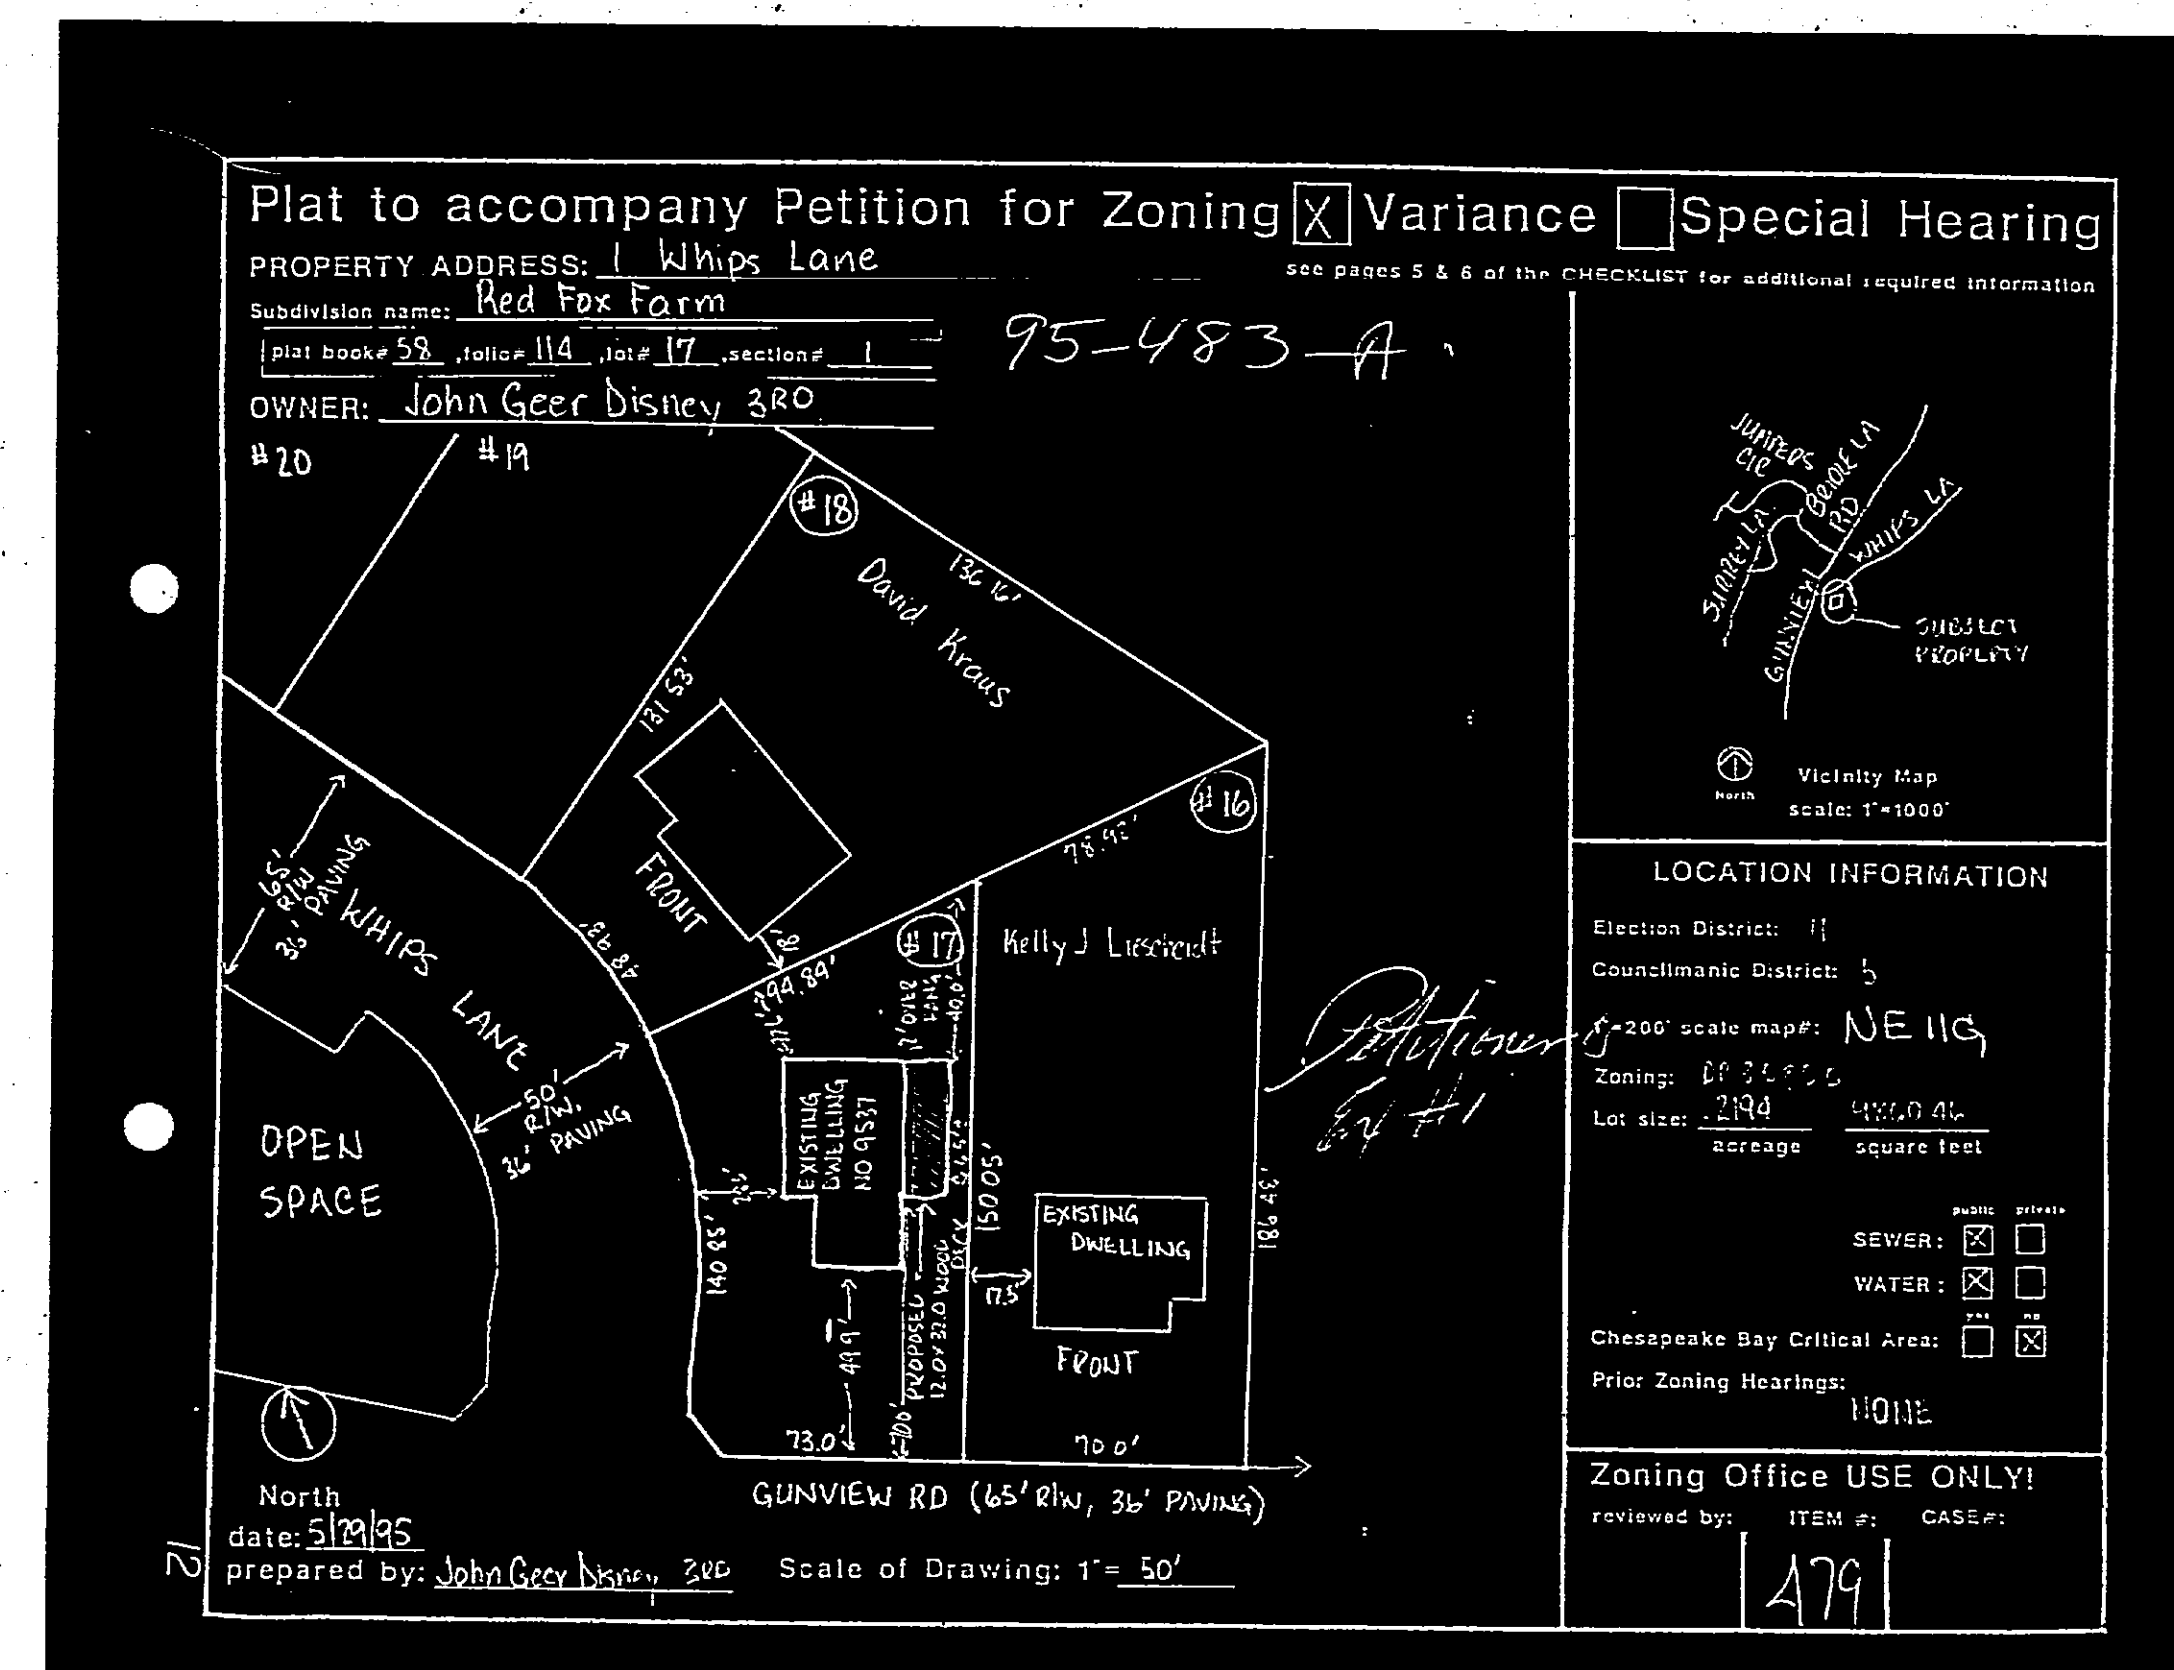 Plat to accompany Petition for Zoning [X] Variance [ ] Special Hearing
PROPERTY ADDRESS: 1 Whips Lane
see pages 5 & 6 of the CHECKLIST for additional required information
Subdivision name: Red Fox Farm
plat book# 58 ,folio# 114 ,lot# 17 ,section# 1
95-483-A
OWNER: John Geer Disney 3RD
#20
#19
#18
David Kraus
136 16'
131 53'
FRONT
#16
78.92'
48 93'
18'
94.89'
#17
Kelly J
65'
R/W
36' PAVING
WHIPS LANE
50'
R/W.
36' PAVING
OPEN
SPACE
2' OVER
HANG
40.0'
EXISTING
DWELLING
NO 9537
150 05'
140 85'
49 9'
PROPOSED
12.0 X 32.0 WOOD
DECK
17.5
EXISTING
DWELLING
FRONT
186 43'
73.0'
70 0'
GUNVIEW RD (65' R/W, 36' PAVING)
Petitioner's
Ex #1
North
date: 5/29/95
prepared by: John Geer Disney 3RD
Scale of Drawing: 1"= 50'
12
JUMPERS
CIR
BRIDLE LA
RD
WHIPS LA
SURREY LA
GUNVIEW
SUBJECT
PROPERTY
North
Vicinity Map
scale: 1"=1000'
LOCATION INFORMATION
Election District: 11
Councilmanic District: 5
1"=200' scale map#: NE 11G
Zoning:
Lot size: .2194
acreage square feet
public private
SEWER: [X] [ ]
WATER: [X] [ ]
yes no
Chesapeake Bay Critical Area: [ ] [X]
Prior Zoning Hearings:
NONE
Zoning Office USE ONLY!
reviewed by: ITEM #: CASE#:
479